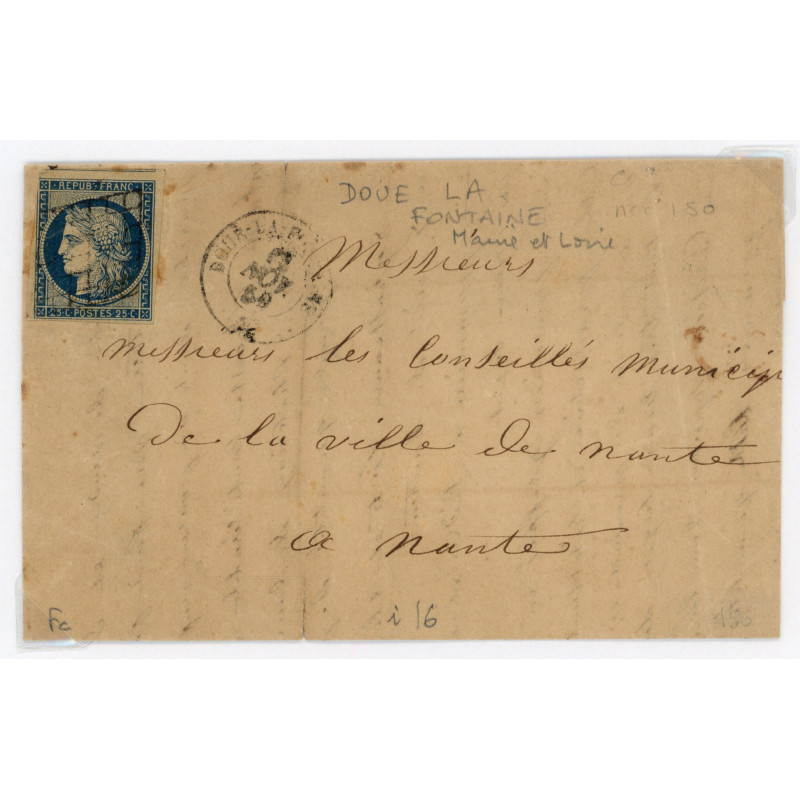 REPUB. FRANC.
25 C. POSTES 25 C.
DOUE-LA-F
NOV.
DOUE LA
FONTAINE
Maine et Loire
150
Messieurs
messieurs les Conseillés municip
de la ville de nante
a nante
Fc
i 16
150